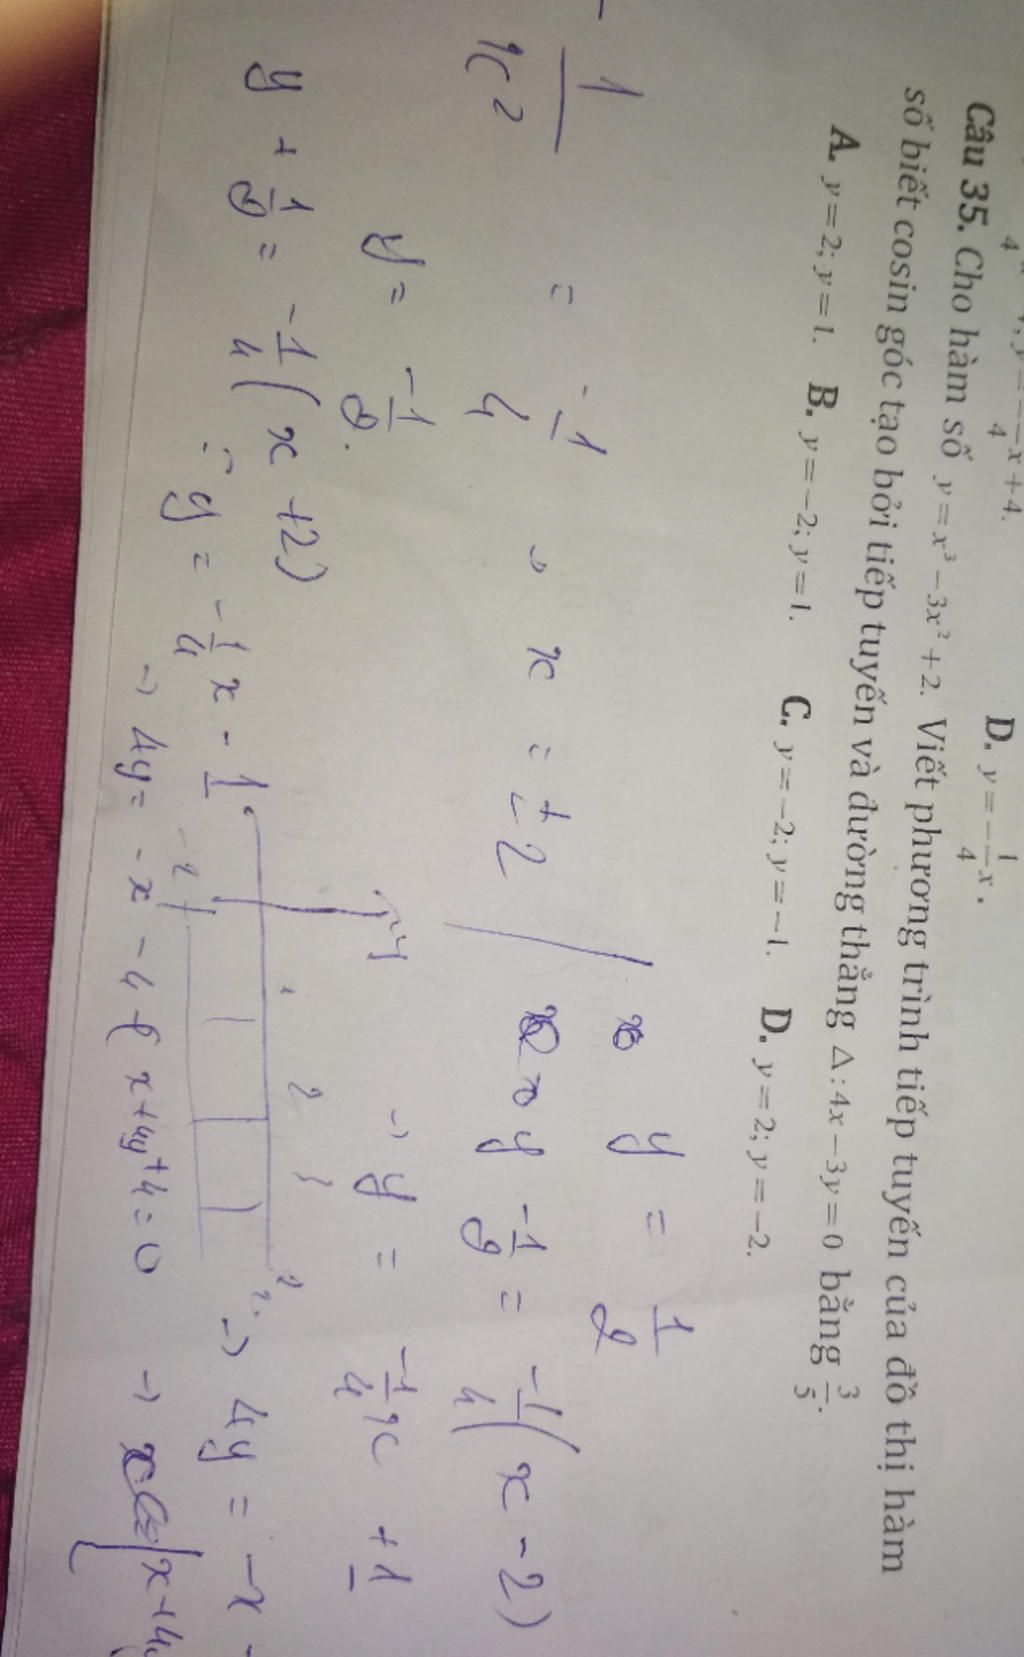 D. y = -1/4 x.
Câu 35. Cho hàm số y = x³ − 3x² + 2. Viết phương trình tiếp tuyến của đồ thị hàm
số biết cosin góc tạo bởi tiếp tuyến và đường thẳng Δ: 4x − 3y = 0 bằng 3/5.
A. y = 2; y = 1. B. y = −2; y = 1. C. y = −2; y = −1. D. y = 2; y = −2.
y = 1/2
1/x² = -1/4 x = ±2
y - 1/2 = -1/4 (x - 2)
y = -1/2.
→ y = -1/4 x + 1
y + 1/2 = -1/4 (x + 2)
→ 4y = -x
y = -1/4 x - 1
→ 4y = -x - 4 x + 4y + 4 = 0